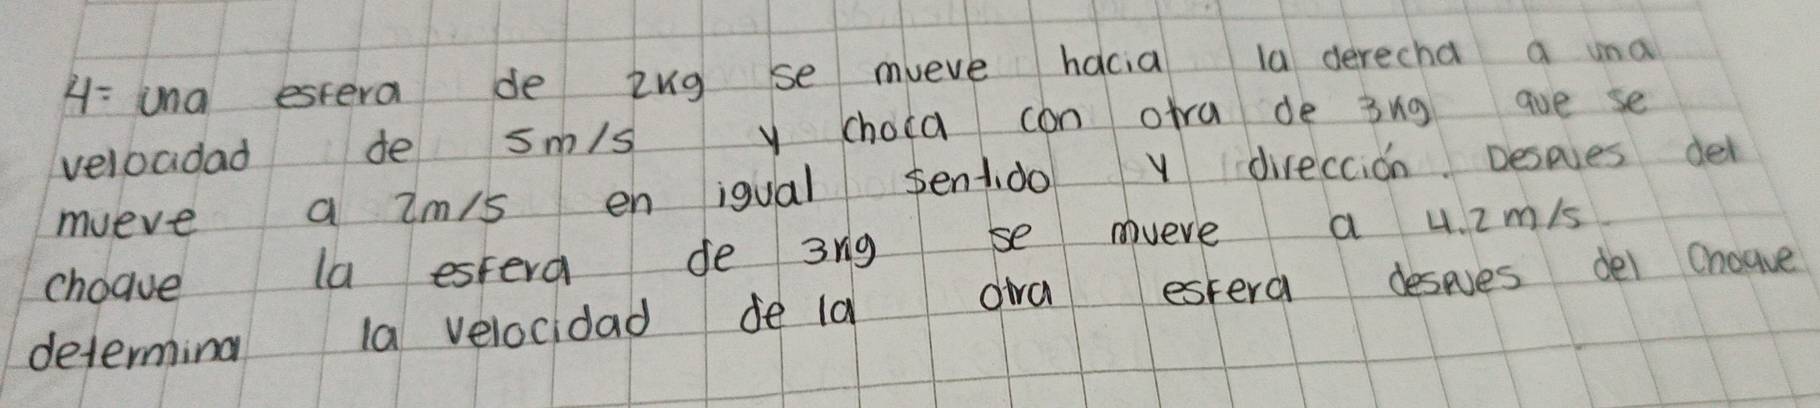 4= una esfera de 2kg se mueve hacia la derecha a una
velocidad de 5m/s y choca con otra de 3kg que se
mueve a 2m/s en igual sentido y dirección. Despues del
choque la esfera de 3kg se mueve a 4.2m/s
determina la velocidad de la otra esfera despues del choque